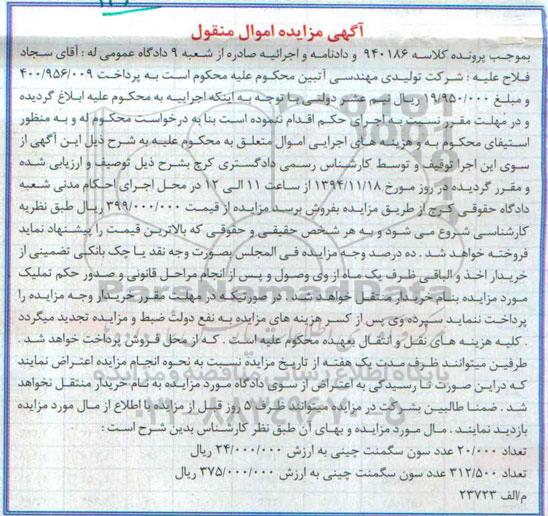 آگهی مزایده اموال منقول
بموجب پرونده کلاسه ۹۴۰۱۸۶ و دادنامه و اجرائیه صادره از شعبه ۹ دادگاه عمومی له : آقای سجاد
فلاح علیه : شرکت تولیدی مهندسی آتبین محکوم علیه محکوم است به پرداخت ۴۰۰/۹۵۶/۰۰۹
و مبلغ ۱۹/۹۵۰/۰۰۰ ریال نیم عشر دولتی با توجه به اینکه اجراییه به محکوم علیه ابلاغ گردیده
و در مهلت مقرر نسبت به اجرای حکم اقدام ننموده است بنا به درخواست محکوم له و به منظور
استیفای محکوم به و هزینه های اجرایی اموال متعلق به محکوم علیه به شرح ذیل این آگهی از
سوی این اجرا توقیف و توسط کارشناس رسمی دادگستری کرج بشرح ذیل توصیف و ارزیابی شده
و مقرر گردیده در روز مورخ ۱۳۹۴/۱۱/۱۸ از ساعت ۱۱ الی ۱۲ در محل اجرای احکام مدنی شعبه
دادگاه حقوقی کرج از طریق مزایده بفروش برسد مزایده از قیمت ۳۹۹/۰۰۰/۰۰۰ ریال طبق نظریه
کارشناسی شروع می شود و به هر شخص حقیقی و حقوقی که بالاترین قیمت را پیشنهاد نماید
فروخته خواهد شد . ده درصد وجه مزایده فی المجلس بصورت وجه نقد یا چک بانکی تضمینی از
خریدار اخذ و الباقی ظرف یک ماه از وی وصول و پس از انجام مراحل قانونی و صدور حکم تملیک
مورد مزایده بنام خریدار منتقل خواهد شد . در صورتیکه در مهلت مقرر خریدار وجه مزایده را
پرداخت ننماید سپرده وی پس از کسر هزینه های مزایده به نفع دولت ضبط و مزایده تجدید میگردد
. کلیه هزینه های نقل و انتقال بعهده محکوم علیه است . که از محل فروش پرداخت خواهد شد .
طرفین میتوانند ظرف مدت یک هفته از تاریخ مزایده نسبت به نحوه انجام مزایده اعتراض نمایند
که در این صورت تا رسیدگی به اعتراض از سوی دادگاه مورد مزایده به نام خریدار منتقل نخواهد
شد . ضمنا طالبین بشرکت در مزایده میتوانند ظرف ۵ روز قبل از مزایده با اطلاع از مال مورد مزایده
بازدید نمایند . مال مورد مزایده و بهای آن طبق نظر کارشناس بدین شرح است :
تعداد ۲۰/۰۰۰ عدد سون سگمنت چینی به ارزش ۲۴/۰۰۰/۰۰۰ ریال
تعداد ۳۱۲/۵۰۰ عدد سون سگمنت چینی به ارزش ۳۷۵/۰۰۰/۰۰۰ ریال
م/الف ۲۳۷۲۳
ParsNamadData